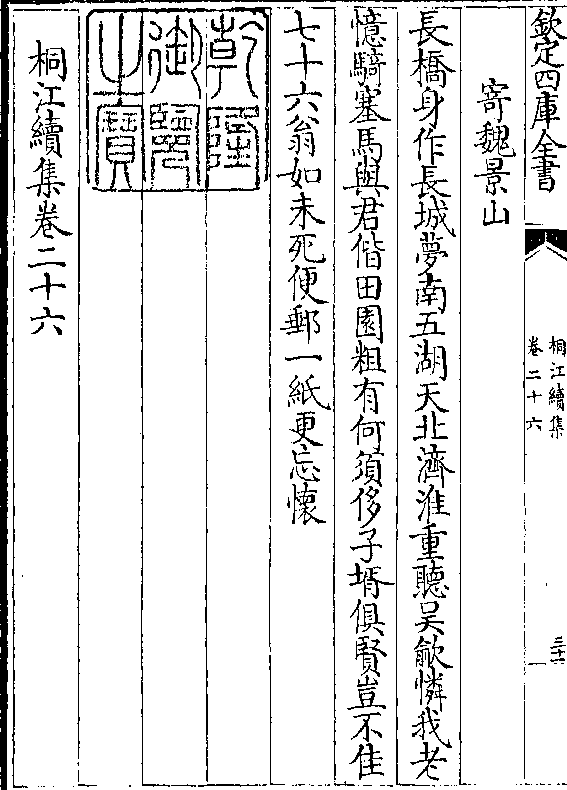 欽定四庫全書
桐江續集
卷二十六
三十一
寄魏景山
長橋身作長城夢南五湖天北濟淮重聽吴歈憐我老
憶騎塞馬與君偕田園粗有何須侈子壻俱賢豈不佳
七十六翁如未死便郵一紙更忘懷
乾隆
御覽
之寶
桐江續集卷二十六